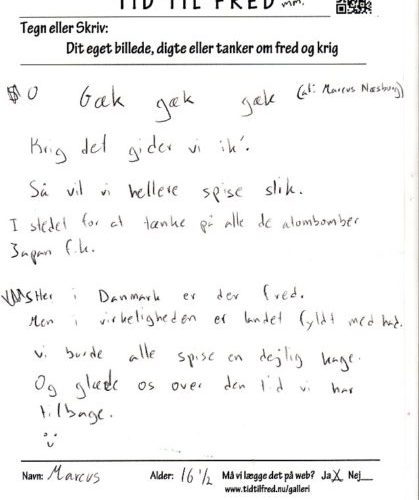 TID TIL FRED mm.
Tegn eller Skriv:
Dit eget billede, digte eller tanker om fred og krig
O Gæk gæk gæk (af: Marcus Næsborg)
Krig det gider vi ik'.
Så vil vi hellere spise slik.
I stedet for at tænke på alle de atombomber
Japan fik.
Her i Danmark er der fred.
Men i virkeligheden er landet fyldt med had.
Vi burde alle spise en dejlig kage.
Og glæde os over den tid vi har
tilbage.
Navn: Marcus Alder: 16 1/2 Må vi lægge det på web? Ja X Nej
www.tidtilfred.nu/galleri